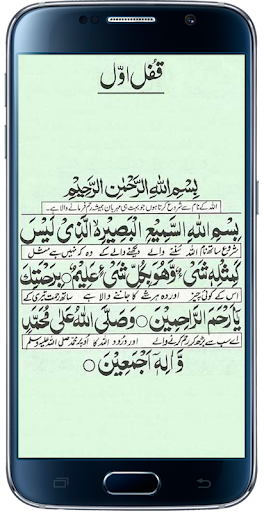 قفل اوّل
بِسْمِ اللهِ الرَّحْمٰنِ الرَّحِيْمِ
اللہ کے نام سے شروع کرتا ہوں جو بہت ہی مہربان ہمیشہ رحم فرمانے والا ہے۔
بِسْمِ اللهِ السَّمِيْعِ الْبَصِيْرِ ۝ الَّذِيْ لَيْسَ
شروع ساتھ نام اللہ سننے والے دیکھنے والے کے وہ کہ نہیں ہے مثل
كَمِثْلِهٖ شَيْءٌ وَّهُوَ بِكُلِّ شَيْءٍ عَلِيْمٌ ۝ بِرَحْمَتِكَ
اس کے کوئی چیز اور وہ ہر شے کا جاننے والا ہے ساتھ رحمت تیری کے
يَا اَرْحَمَ الرَّاحِمِيْنَ ۝ وَصَلَّى اللهُ عَلٰى مُحَمَّدٍ
اے سب سے بڑھ کر رحم کرنے والے اور درود اللہ کا اوپر محمد صلی اللہ علیہ وسلم
وَّاٰلِهٖ اَجْمَعِيْنَ ۝